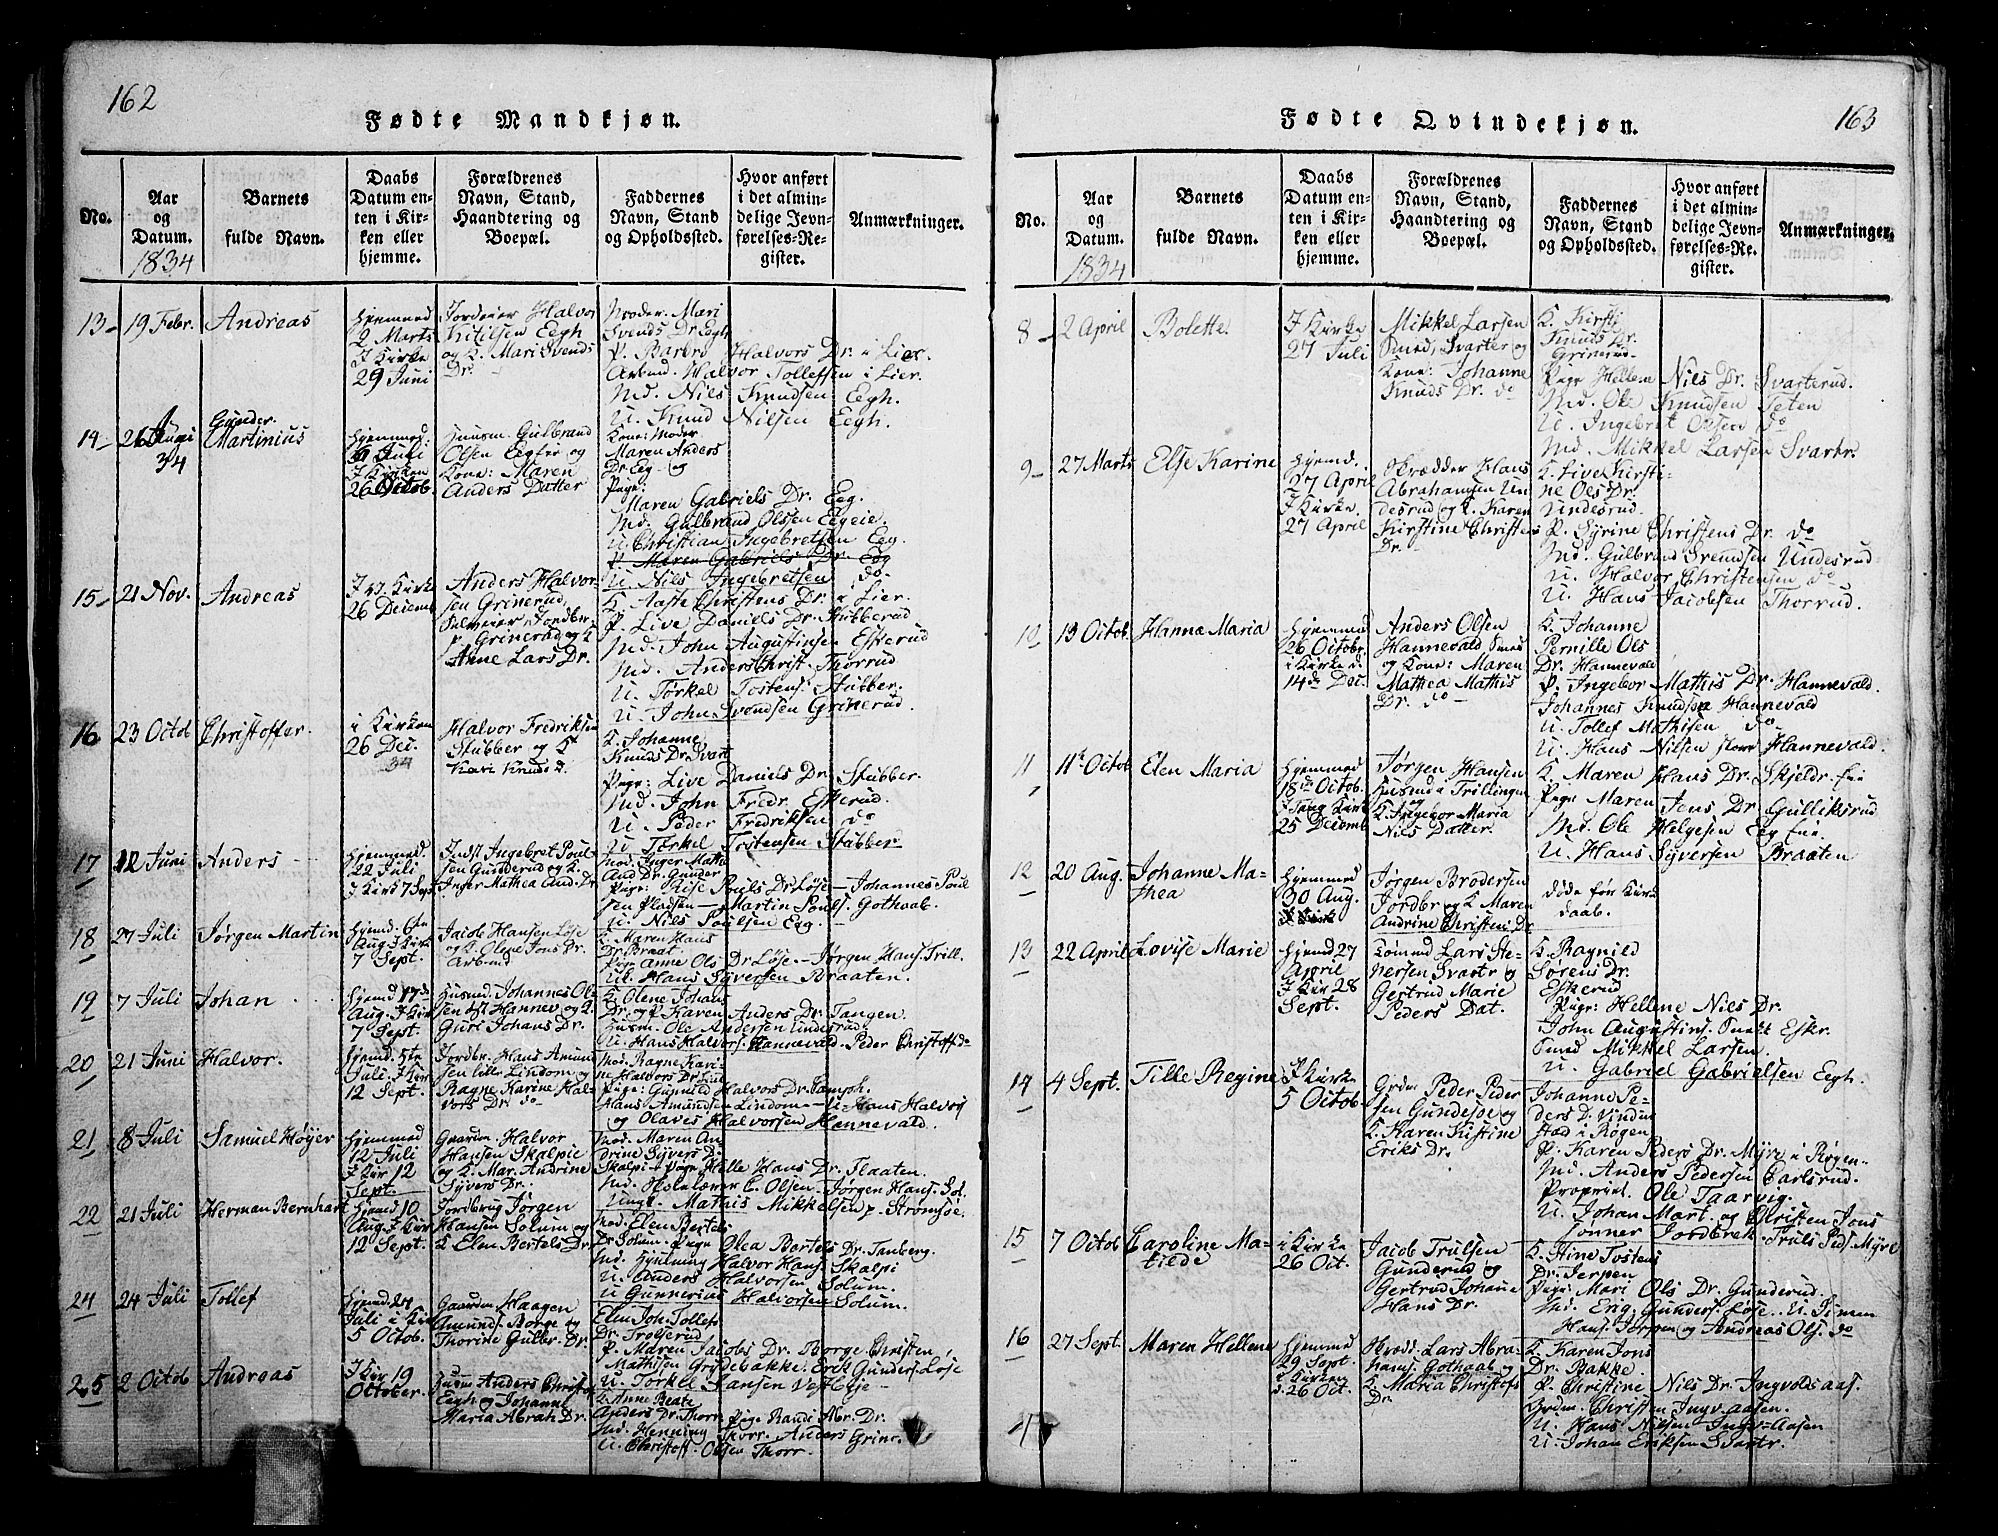 162
Fødte Mandkjøn.
No.
Aar og Datum.
1834
Barnets fulde Navn.
Daabs Datum enten i Kirken eller hjemme.
Forældrenes Navn, Stand, Haandtering og Boepæl.
Faddernes Navn, Stand og Opholdssted.
Hvor anført i det almindelige Jevnførelses-Register.
Anmærkninger.
13 19 Febr. Andreas
Hjemmed
2 Marts
I Kirke
29 Juni
Jordeier Halvor
Kitilsen Eegh
og K. Mari Svends
Dr.
Moder. Mari
Svends Dr. Eegh
P. Barbro Halvors Dr. i Lier.
Arbmd. Halvor Tollefsen i Lier.
Md. Nils Knudsen Eegh.
U. Knud Nilsen Eegh.
14 26 Juni
34
Gunder
Martinius
Hjemmed.
Juli
I Kirken
26 Octob.
Huusm. Gulbrand
Olsen Eegeie og
Kone: Maren
Anders Datter
Kone: Moder
Maren Anders
Dr. Eeg og
Pige:
Maren Gabriels Dr. Eeg.
Md. Gulbrand Olsen Eegeie.
U. Christian Ingebretsen Eeg.
P. Maren Gabriels Dr. Eeg
U. Nils Ingebretsen do.
15 21 Nov. Andreas
Kirke
26 Decemb
Anders Halvor-
sen Grinerud,
Selveier Jordbr.
p. Grinerud og K.
Anne Lars Dr.
K. Aaste Christens Dr. i Lier.
P. Live Daniels Dr. Stubberud
Md. John Augustinsen Eskerud
Md. Anders Christ. Thorrud
U. Törkel Tostens. Stubber.
U. John Svendsen Grinerud.
16 23 Octob Christoffer.
i Kirken
26 Dec.
34
Halvor Fredriksen
Stubber og K
Kari Knuds D.
K. Johanne
Knuds Dr. Svart
Pige: Live Daniels Dr. Stubber.
Md. John Fredr. Eskerud.
U. Peder Fredriksen do
U. Törkel Tostensen Stubber
17 12 Juni Anders
Hjemmed.
22 Juli
I Kirk 7 Sept.
Indst Ingebret Poul-
sen Gunderud og K.
Inger Mathea And. Dr.
Mod. Inger Mathe
And Dr. Gunder
Pige: Lise Pouls Dr. Løse – Johannes Poul
sen Pladsen – Martin Pouls. Gothaab.
U. Nils Poulsen Egg.
18 27 Juli Jørgen Martin
Hjemd. 6te
Aug. I Kirk
7 Sept.
Jacob Hansen Løse
og K. Olene Jons Dr.
Arbmd
K. Maren Hans
Dr. Braat
Pige Anne Ols Dr Løse – Jørgen Hans. Trill.
U. Hans Syversen Braaten.
19 7 Juli Johan
Hjemd 17de
Aug. I Kir
7 Sept.
Husmd. Johannes Ol-
sen Hannev og K.
Guri Johans Dr.
K. Olene Johans
Dr. og P. Karen Anders Dr. Tangen.
Husm. Ole Andersen Undesrud.
U. Hans Halvors. Hannevald. Peder Christoff do
20 21 Juni Halvor.
Hjemd. 5te
Juli. I Kir
12 Sept.
Jordbr. Hans Amund
sen lille Lindom og
Ragne Karine Hal-
vors Dr. do
Mod. Ragne Kari-
ne Halvors Dr. Lind
Pige: Gunild Halvors Dr.
Hans Amundsen Lindom – U. Hans Halvors
og Olaves Halvorsen Hannevald.
21 8 Juli Samuel Høyer
Hjemmed
12 Juli
I Kir 12
Sept.
Gaardm. Halvor
Hansen Skalpie
og K. Mar. Andrine
Syvers Dr.
Mod. Maren An-
drine Syvers D.
Skalpi – Pige Helle Hans Dr. Flaaten.
Md. Skolelærer C. Olsen – Jørgen Hans. Sol.
Ungk. Mathis Mikkelsen p. Strömsöe.
22 21 Juli Herman Bernhart
Hjemd 10
Aug. I Kir
12 Sept.
Jordbrug Jørgen
Hansen Solum og
K Elen Bertels Dr.
Mod. Elen Bertels
Dr. Solum. Pige Olea Bartels Dr. Tanberg.
Md. Hyulning Halvor Hans. Skalpi
U. Anders Halvorsen Solum.
U Gunnerius Halvorsen Solum.
24 24 Juli Tollef
Hjemd. 24
Juli i Kir
5 Octob.
Gaardm. Haagen
Amunds. Borge og
Thorine Gulbr. Dr.
Elen Joh. Tollefs
Dr. Trolserud
P. Maren Jacobs Dr. Borge Christen
Mathisen Grydebakke. Erik Gunders. Løse
U. Torkel Jansen
25 2 Octob Andreas
I Kir 19
October.
Huusm. Anders Christ.
Eegh og Johanne
Maria Abrah Dr.
K. Anne Beate
Anders Dr. Thorr. Pige Randi Abr. Dr.
Md. Henning Thorr. Anders Grine.
U. Christoff. Olsen Thorr.
163
Fødte Qvindekjøn.
No.
Aar og Datum.
1834
Barnets fulde Navn.
Daabs Datum enten i Kirken eller hjemme.
Forældrenes Navn, Stand, Haandtering og Boepæl.
Faddernes Navn, Stand og Opholdssted.
Hvor anført i det almindelige Jevnførelses-Register.
Anmærkninger.
8 2 April Bolette.
I Kirke
27 Juli
Mikkel Larsen
Smed, Svarter og
Kone: Johanne
Knuds Dr. do
K. Kirsti
Knuds Dr.
Grinerud
Pige Hellem Nils Dr. Svarterud.
Md. Ole Knudsen Teten
U. Ingebret Olsen do
Md. Mikkel Larsen Svartr.
9 27 Marts Else Karine
Hjemd.
27 April
I Kirke
27 April
Skrædder Hans
Abrahamsen Un
desrud og K. Karen
Kirstine Christens
Dr.
K. Live Kirsti-
ne Ols Dr.
Undesrud.
P. Syrine Christens Dr. do
Md. Gulbrand Svendsen Undesrud
U. Halvor Christensen do
U. Hans Jacobsen Thorrud.
10 13 Octob. Hanna Maria
Hjemmed
26 Octobr.
i Kirke d.
14de Dec.
Anders Olsen
Hannevald
og Kone: Maren
Mathea Mathis
Dr. do
K. Johanne
Pernille Ols
Dr. Hannevald
P. Ingebor Mathis Dr. Hannevald.
Johannes Knudsen Hannevald
U. Tollef Mathisen do
U. Hans Nilsen store Hannevald.
11 11te Octob Elen Maria
Hjemmed
18de Octob.
Kirk
25 Decemb
Jørgen Hansen
Husmd i Trillingen
og
K. Ingebor Maria
Nils Datter.
K. Maren Hans Dr. Skjeldr. eie
Pige Maren Jens Dr. Gulliksrud
Md. Ole Helgesen Eeg eie.
U. Hans Syversen Braaten
12 20 Aug. Johanne Ma-
thea
Hjemmed
30 Aug.
Jørgen Brodersen
Jordbr og K Maren
Andrine Christen Dr
døde før Kirk
daab.
13 22 April Lovise Marie
Hjemd 27
April
I Kir 28
Sept.
Lars Ste-
nersen Svartr og
Gertrud Marie
Peders Dat.
K. Ragnild
Sörens Dr.
Eskerud
Pige: Hellene Nils Dr.
John Augustins. Eskr.
Smed Mikkel Larsen.
U. Gabriel Gabrielsen Eegh.
14 4 Sept. Tille Regine
I Kirke
5 Octob
Grdm Peder Peder
sen Gundesöe og
K. Karen Kistine
Eriks Dr.
Johanne Pe-
ders D. Vindus
stad i Røgen
P. Karen Peders Dr. Myre i Røgen
Md. Anders Pedersen Carlsrud.
Propriet. Ole Taarvig.
U. Johan Mart. og Christen Jons
Sønner Jordbrek. Truls Peds. Myre
15 7 Octob Caroline Ma-
tilde
i Kirke
26 Oct.
Jacob Trulsen
Gunderud og
Gertrud Johane
Hans Dr.
K. Stine Tostens
Dr. Jerpen
Pige: Mari Ols Dr. Gunderud.
Md. Erig Gunders. Løse.. U. Simen
Hans. Jerpen og Andreas Ols. do
16 27 Sept. Maren Hellene
Hjemmed
29 Sept.
i Kirken
26 Oct.
Skrædd. Lars Abra-
hams. Gothaab og
K. Maria Christofs
Dr.
K. Karen Jons
Dr. Bakke
P. Christine Nils Dr. Ingvoldsaas.
Grdm. Christen Ingv. aasen.
U. Hans Nilsen Ingv. Aasen
U. Johan Eriksen Svartr.